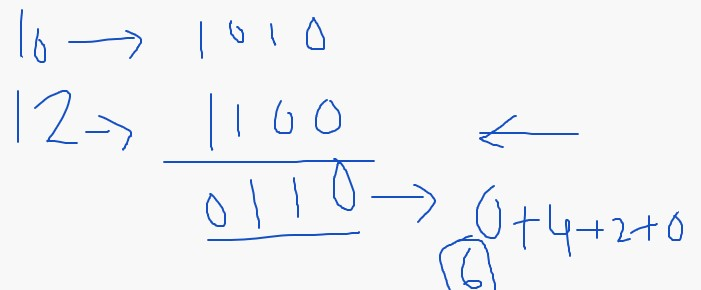 10 → 1010
12 → 1100 ←
0110 → 0+4+2+0
6